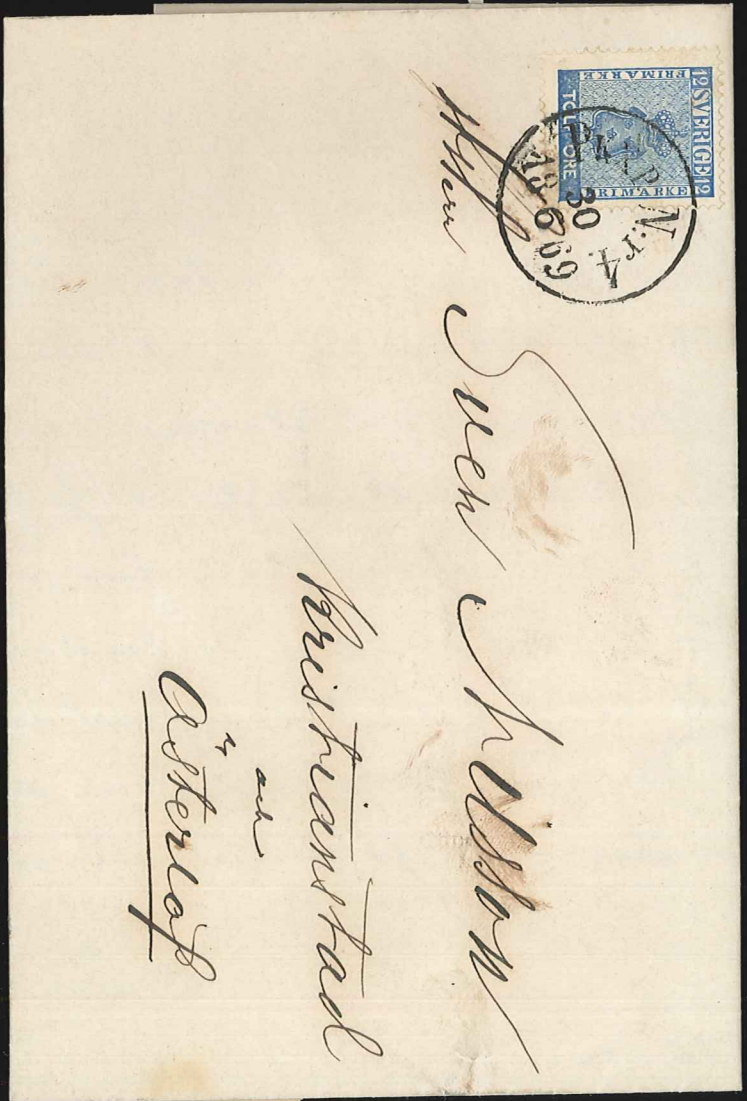 12 SVERIGE 12
FRIMÄRKE
FRIMÄRKE
TOLF ÖRE
N:r 4
30
18 6 69
Herr Sven Nilsson
Kristianstad
och
Österlöf